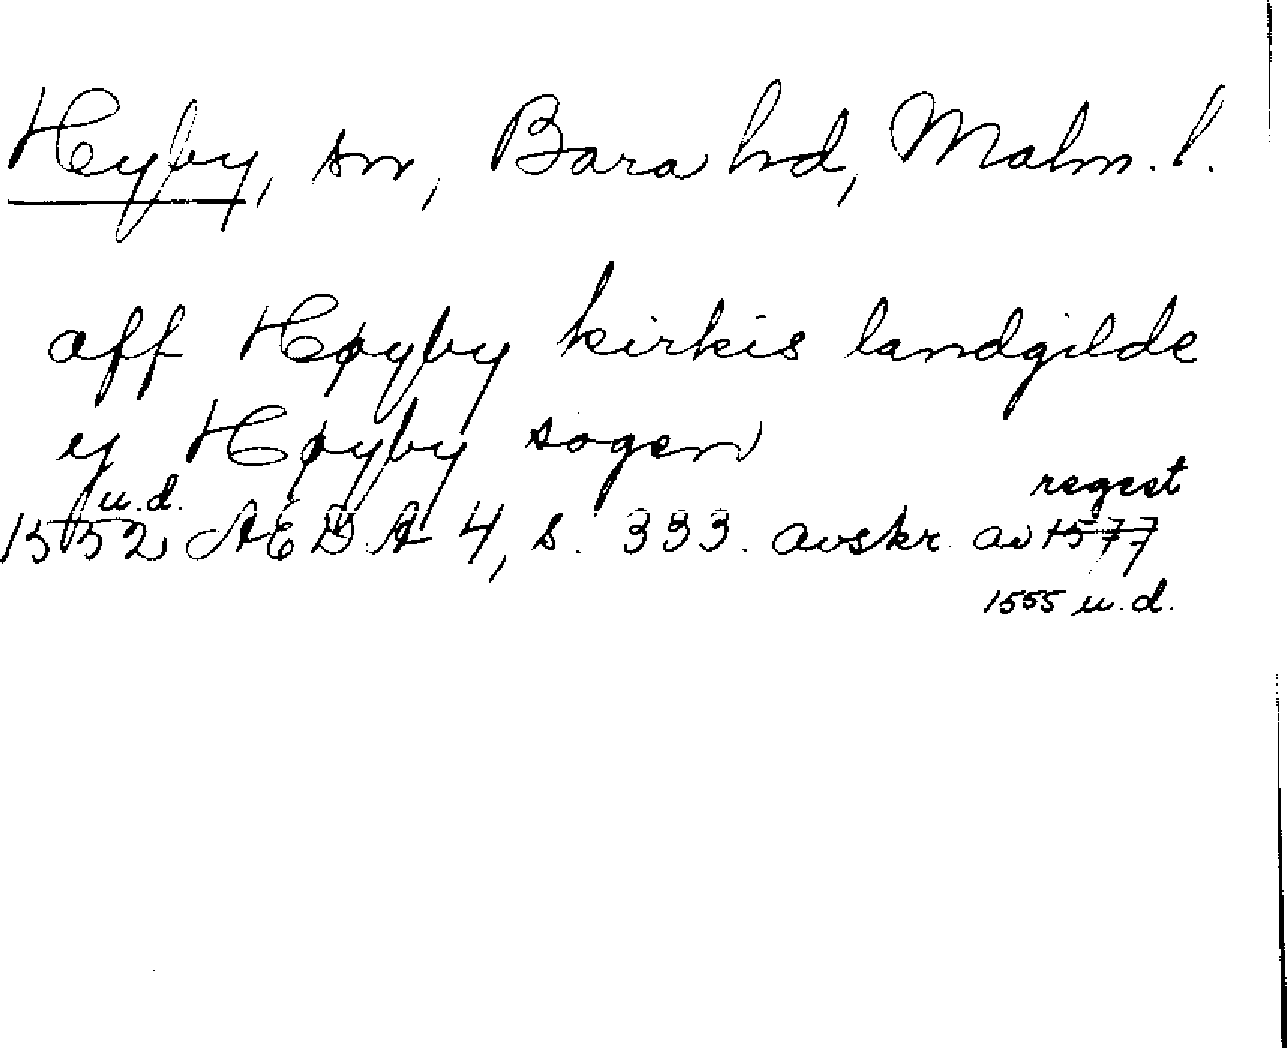 Hyby, sn, Bara hd, Malm. l.
aff Høyby kirkis landgilde
y Høyby sogen
u.d. regest
1552 ÆDA 4, s. 333. avskr. av 1577
1555 u.d.